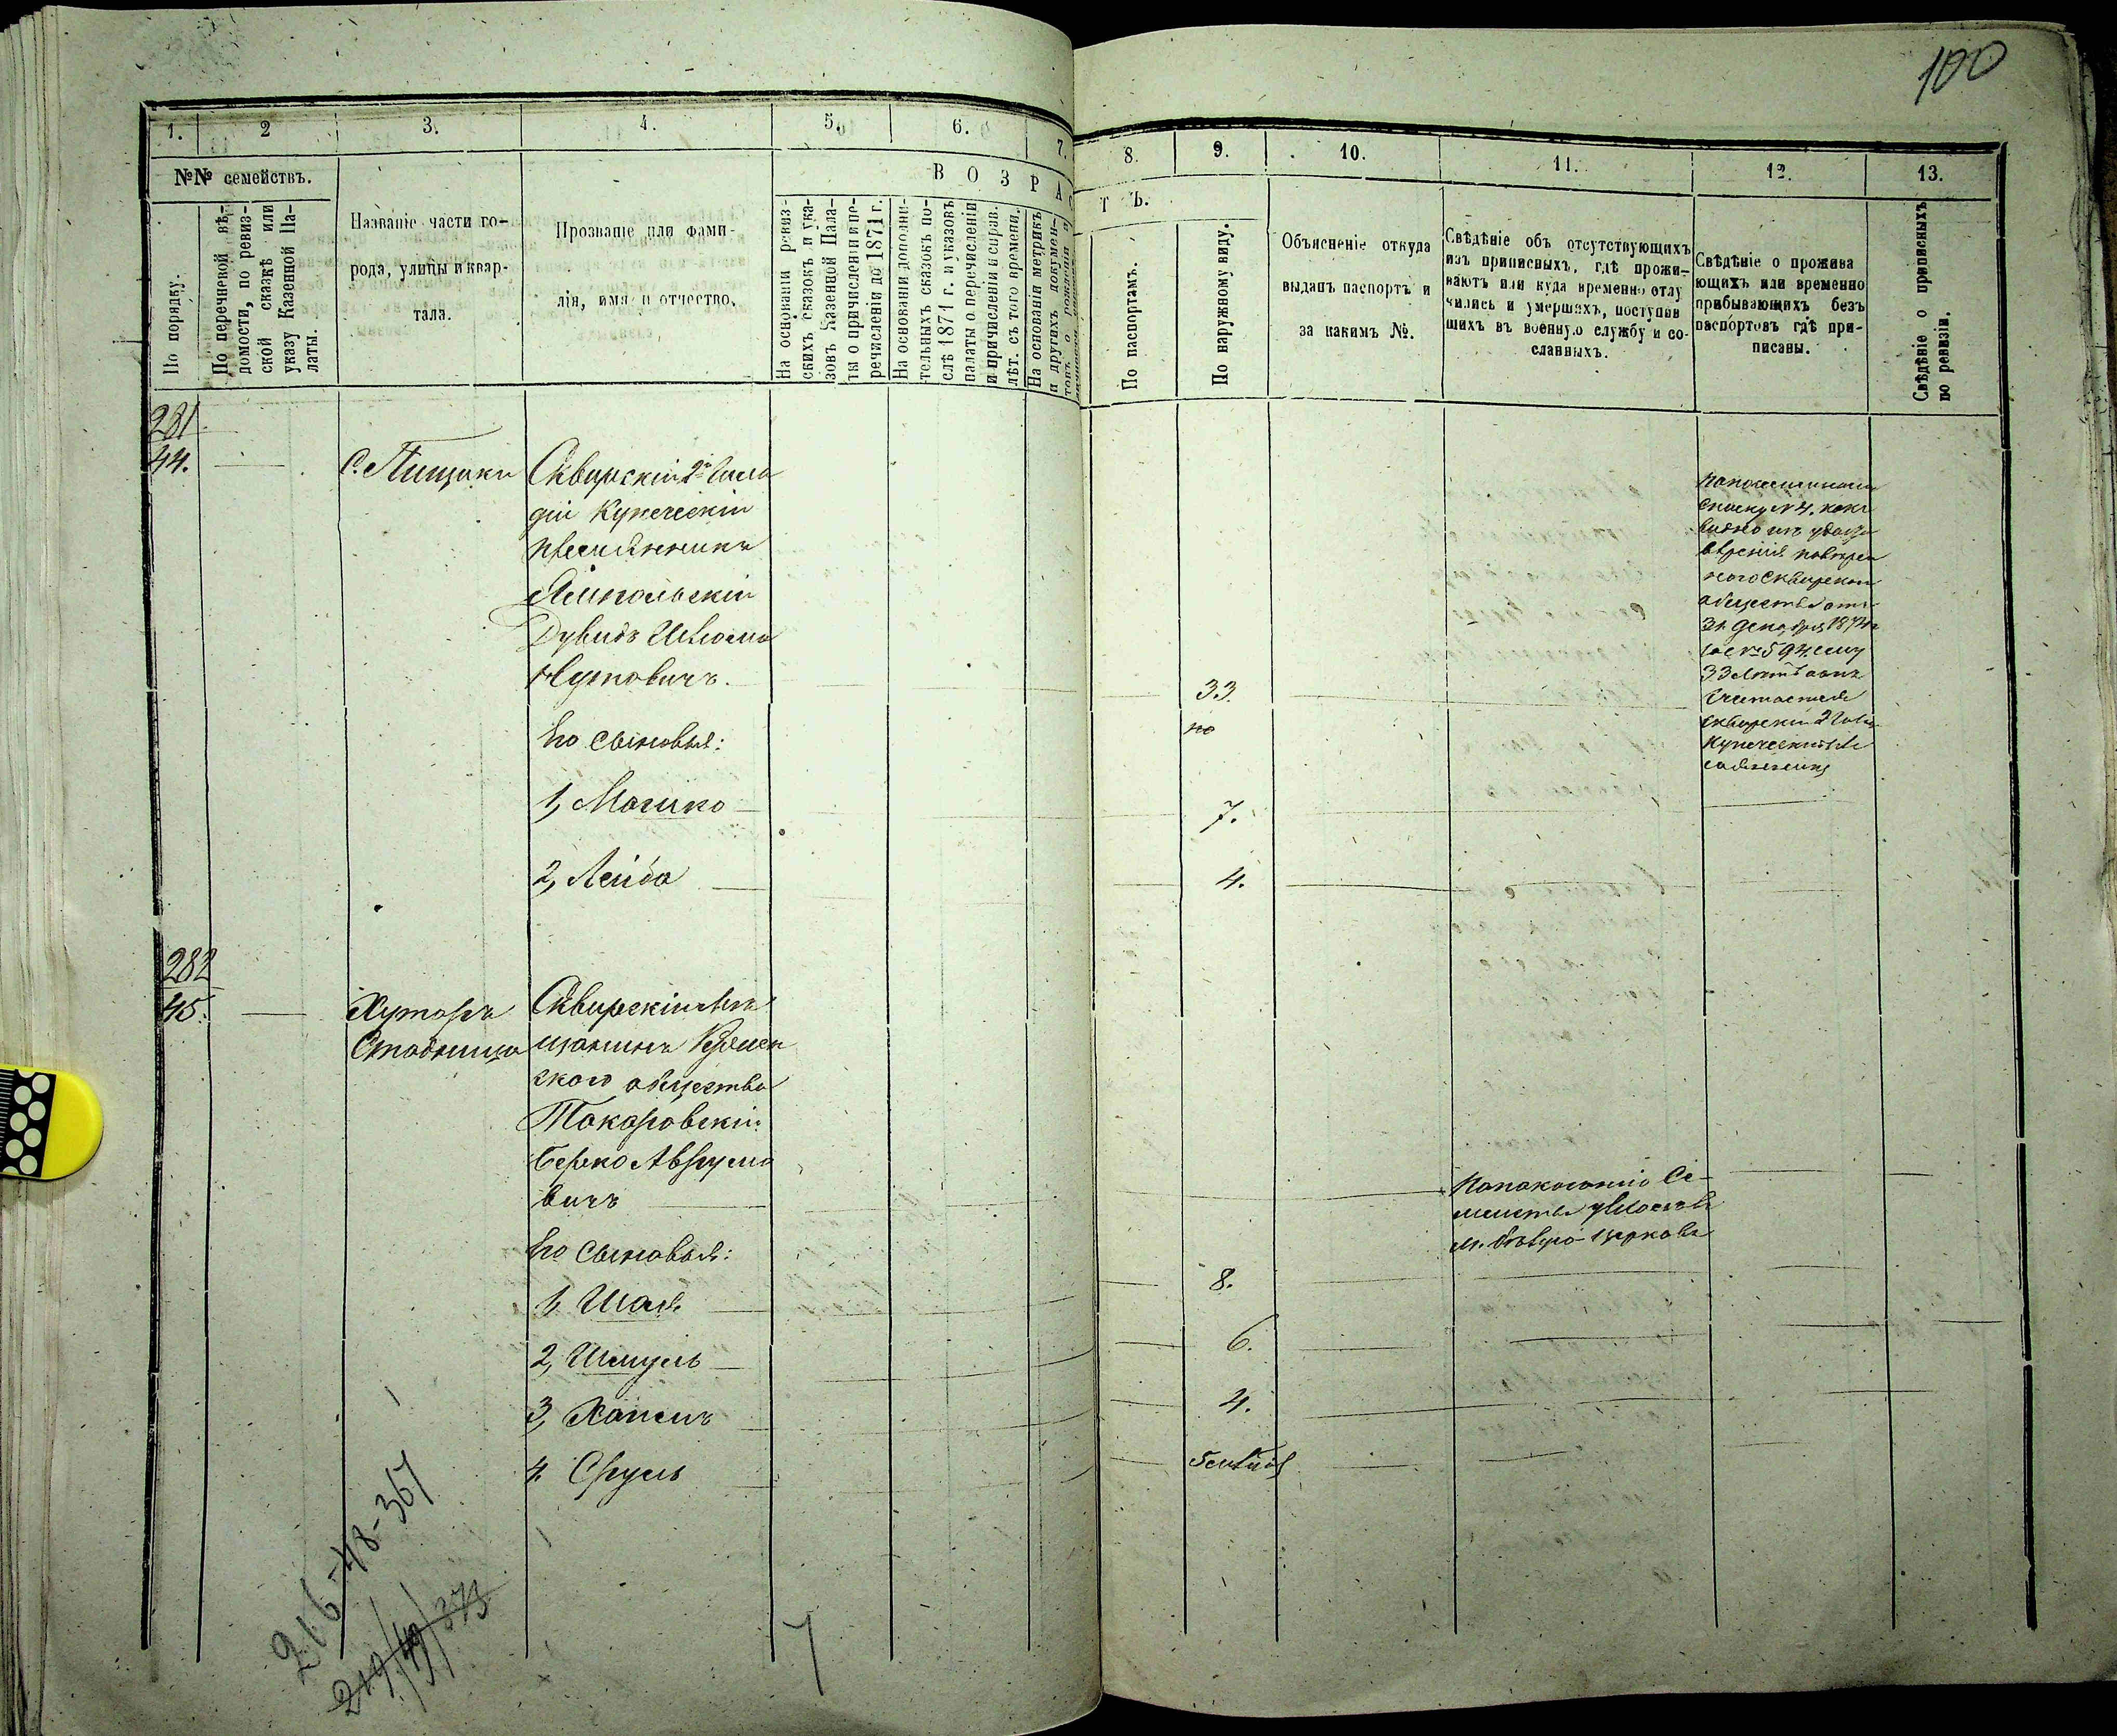 100
1.
2
3.
4.
5.
6.
7.
8.
9.
10.
11.
12.
13.
№№ семействъ.
По порядку.
По перечневой вѣ-
домости, по ревиз-
ской сказкѣ или
указу Казенной Па-
латы.
Названіе части го-
рода, улицы и квар-
тала.
Прозваніе или фами-
лія, имя и отчество.
ВОЗРАСТЪ.
На основаніи ревиз-
скихъ сказокъ и ука-
зовъ Казенной Пала-
ты о причисленіи и пе-
речисленіи до 1871 г.
На основаніи дополни-
тельныхъ сказокъ по-
слѣ 1871 г. и указовъ
палаты о перечисленіи
и причисленіи и справ.
лѣт. съ того времени.
На основаніи метрикъ
и другихъ докумен-
товъ о рожденіи и
По паспортамъ.
По наружному виду.
Объясненіе откуда
выданъ паспортъ и
за какимъ №.
Свѣдѣніе объ отсутствующихъ
изъ приписныхъ, гдѣ прожи-
ваютъ или куда временно отлу
чились и умершихъ, поступив
шихъ въ военную службу и со-
сланныхъ.
Свѣдѣніе о прожива
ющихъ или временно
прибывающихъ безъ
паспортовъ гдѣ при-
писаны.
Свѣдѣніе о приписныхъ
по ревизіи.
281
44.
С. Пищики
Сквирскій 2й Гиль
діи Купеческій
племянникъ
Ямпольскій
Дувидъ
Нутовичъ.
33.
по
Его сыновья:
1, Мошко
7.
2, Лейба
4.
Сквирскаго
общества отъ
31 Декабря 1874
33 лѣтъ
считается
сквирскій 2 Гиль
Купеческій
282
45.
Хуторъ
Ставница
Сквирскій Мѣ
щанинъ
скаго общества
Токаровскій
Берко Аврумо
вичъ
м. Бѣлую-церковь
Его сыновья:
1, Шая
8.
2, Шмуль
6.
3, Хаимъ
4.
4. Сруль
216-48-367
219/49/373
7